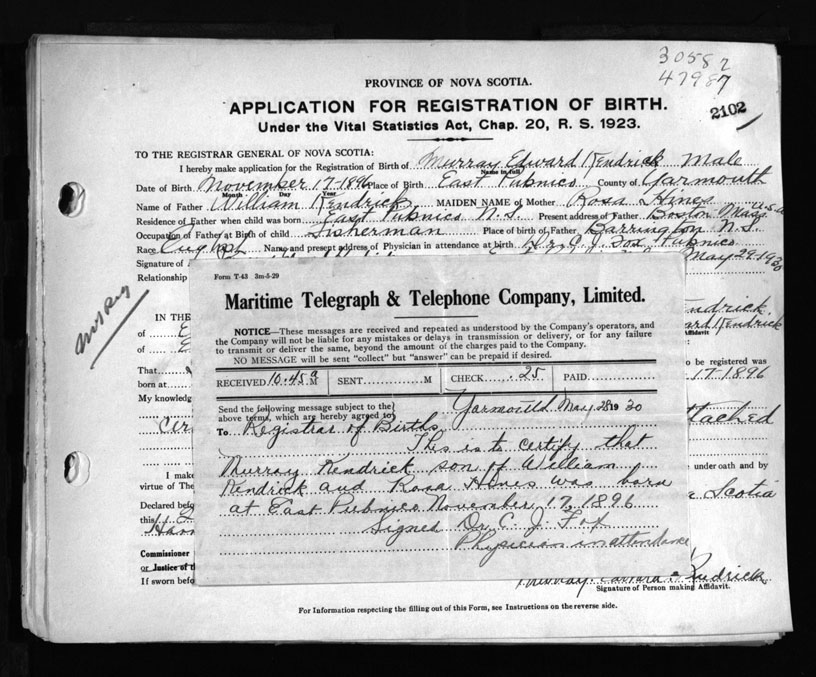 30582
47987
PROVINCE OF NOVA SCOTIA.
2102
APPLICATION FOR REGISTRATION OF BIRTH.
Under the Vital Statistics Act, Chap. 20, R. S. 1923.
TO THE REGISTRAR GENERAL OF NOVA SCOTIA:
I hereby make application for the Registration of Birth of Murray Edward Kendrick Male
Name in full
Date of Birth November 17 1896 Place of Birth East Pubnico County of Yarmouth
Month Day Year
Name of Father William Kendrick MAIDEN NAME of Mother Rosa Hines
Residence of Father when child was born East Pubnico N.S. Present address of Father Boston Mass. U.S.A
Occupation of Father at Birth of child Fisherman Place of birth of Father Barrington N.S.
Race English Name and present address of Physician in attendance at birth Dr. C. J. Fox Pubnico
Signature of May 29-1930
Relationship
Form T-43 3m-5-29
Maritime Telegraph & Telephone Company, Limited.
NOTICE—These messages are received and repeated as understood by the Company's operators, and
the Company will not be liable for any mistakes or delays in transmission or delivery, or for any failure
to transmit or deliver the same, beyond the amount of the charges paid to the Company.
NO MESSAGE will be sent "collect" but "answer" can be prepaid if desired.
RECEIVED 10.45 a M SENT M CHECK .25 PAID
Send the following message subject to the
above terms, which are hereby agreed to
Yarmouth May 28 1930
To Registrar of Births,
This is to certify that
Murray Kendrick son of William
Kendrick and Rosa Hines was born
at East Pubnico November 17, 1896
Signed Dr. C. J. Fox
Physician in attendance
IN THE
Kendrick
Kendrick
Affidavit
of E
of E
That
to be registered was
born at
17-1896
My knowledg
Cer
tached
I make
under oath and by
virtue of The
Scotia
Declared before
this
Commissioner
or Justice of the
If sworn befo
Murray Edward Kendrick
Signature of Person making Affidavit.
For Information respecting the filling out of this Form, see Instructions on the reverse side.